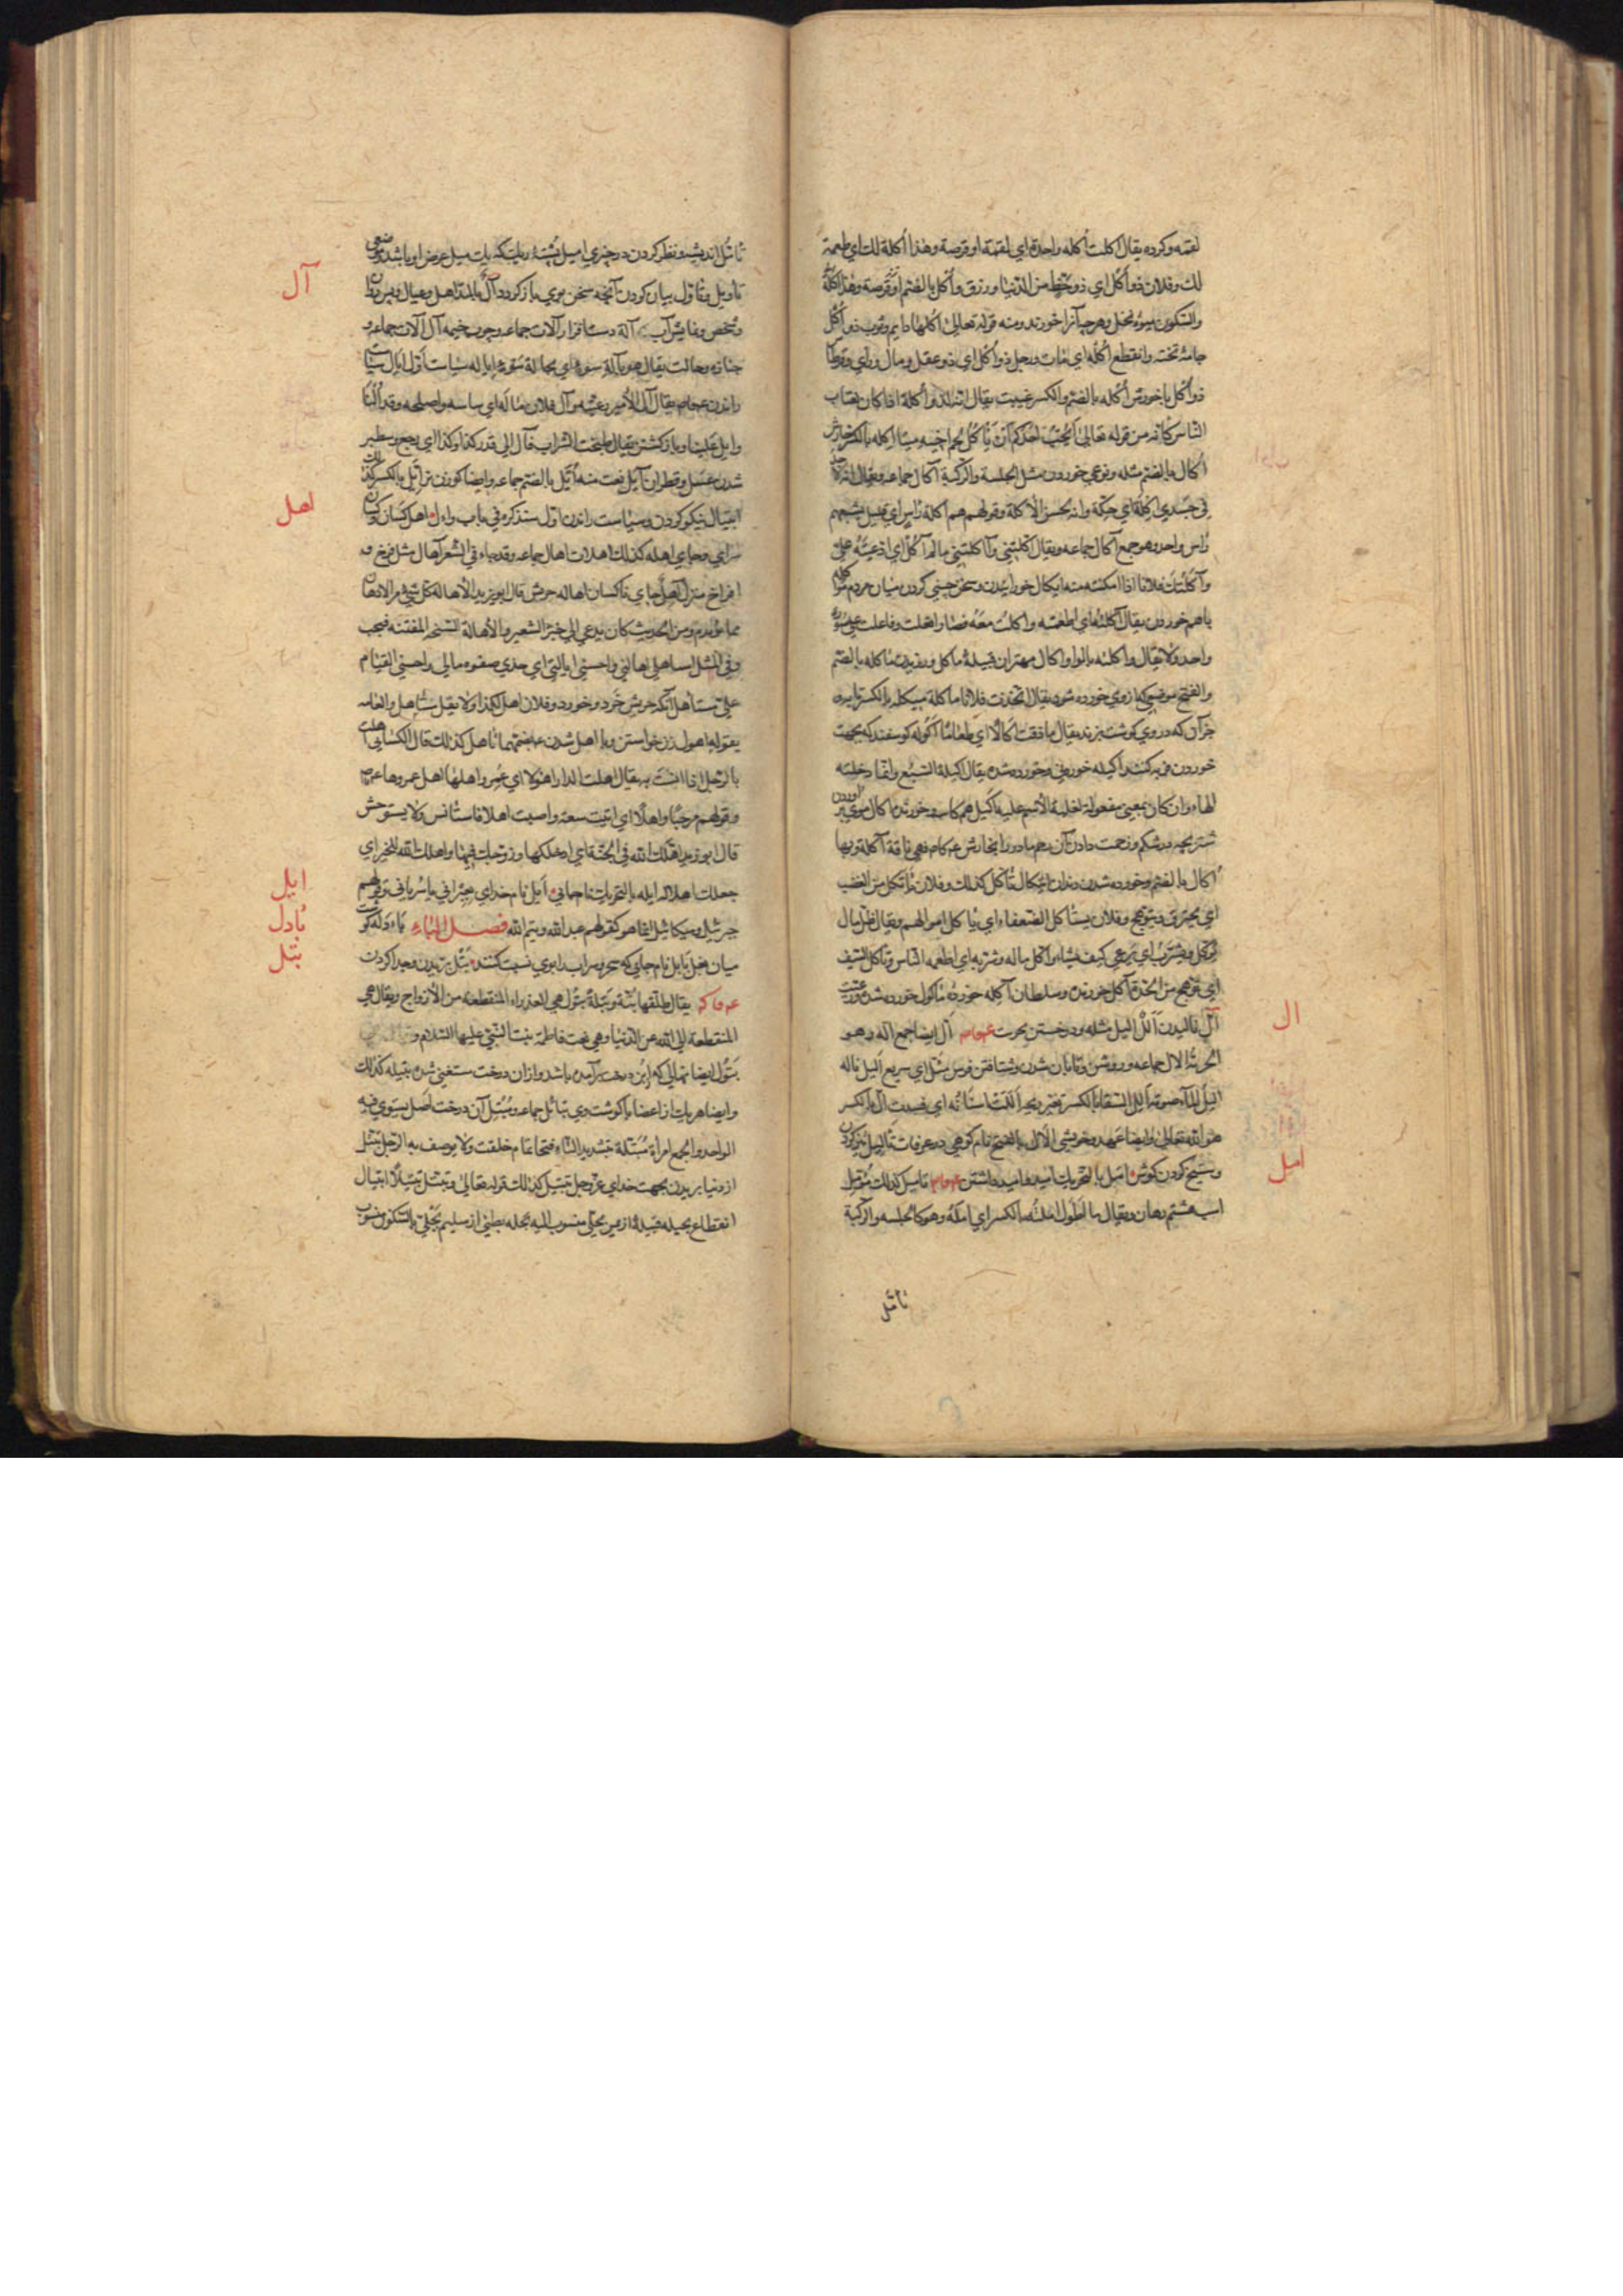 لقمه وكرده يقال اكلت أكله واحدة اي لقمة او قرصة وهذا أكلة لك اي طعمة
لك وفلان ذو أكل اي ذو حظ من الدنيا ورزق وأكل بالضم او قرصة وهذا أكلة
والسكون ميوه نخل وهرچه آنرا خورند ومنه قوله تعالى أكلها دايم وثوب ذو أكل
جامه تخته وانقطع أكله اي مات ورجل ذو أكل اي ذو عقل ومال وراي وقرطاس
ذو أكل باخورش أكله بالضم والكسر غيبت يقال انه لذو أكلة اذا كان يغتاب
الناس كانه من قوله تعالى أيحب احدكم أن يأكل لحم اخيه ميتا اكله بالكسر خارش
أكال بالضم مثله ونوعي خوردن مثل الجلسة والركبة آكال جماعه ويقال
في جسدي إكلة اي حكة وانه لحسن الاكلة وقولهم هم اكلة راس اي قليل يشبعهم
راس واحد وهو جمع آكال جماعه ويقال اكلتني وآكلتني مالم آكل اي ادعيته علي
وآكلتك فلانا اذا امكنته منه ايكال خورانيدن وسخن چيني كردن ميان مردم
باهم خوردن يقال آكلته اي اطعمته واكلت معه
واحد ولا يقال واكلته بالواو اكال مهتران قبيله ماكل ورفدت ماكله بالضم
والفتح موضعي كه ازوي خورده شود يقال اتخذت فلانا ماكلة ميكله بالكسر
خوان كه در وي كوشت پزند يقال ما ذقت أكالا اي طعاما اكوله كوسفند كه بجهت
خوردن فربه كنند اكيله خوردني وخورده شده يقال اكيلة السبع وانما دخلته
الهاء وان كان بمعنى مفعوله لغلبة الاسم عليه اكيل هم كاسه وخورنده اكال موي
شتر بچه در شكم وزحمت دادن آن رحم مادر را بخارش عم كام فهي ناقة أكلة وبها
أكال بالضم وخورده شدن دندان ائتكال تأكل كذلك وفلان يأتكل من الغضب
اي يحترق ويتوهج وفلان يستأكل الضعفاء اي يأكل اموالهم ويقال ظل مالي
يؤكل ويشرب اي يرعى كيف شاء وأكل ماله وشربه اي اطعمه الناس وتأكل السيف
اي توهج من الحدة آكل خورنده وسلطان آكله خورده مأكول خورده شده ورعيت
أل ناليدن ألل اليل مثله ودرخستن بحربت عم جام أل ايضا جمع أله وهو
الحربة الال جماعه وروشن وتابان شدن وشتافتن فرس مثل اي سريع اليل ناله
اليل الماء صوته ألل السقاء بالكسر تغير ريحه أللت اسنانه اي فسدت ال بالكسر
هو الله تعالى وايضا عهد وخويشي الال بالفتح نام كوهي در عرفات تأليل تيز كردن
وسيخ كردن كوش امل بالتحريك اميد واميد داشتن عم جام تاميل كذلك مؤمل
اسب هشتم رهان ويقال ما اطول املته بالكسر اي امله وهو كالجلسة والركبة
تأمل
ال
امل
تأمل انديشه ونظر كردن در چيزي اميل پشتهٔ ريك كه يك ميل عرض او باشد
تأويل وتأول بيان كردن آنچه سخن بوي باز كردد آل بالمد اهل وعيال وپس روان
وشخص ونمايش آب آلة دست افزار آلات جماعه وچوب خيمه آل آلات جماعه و
جنازه وحالت يقال هو بآلة سوء اي بحالة سوء ايالة سياست أول ايال سياست
راندن عم جام يقال آل الامير رعيته وآل فلان ماله اي ساسه واصلحه وقد ألنا
وايل علينا وباز كشتن يقال طبخت الشراب فآل الى قدر كذا وكذا اي رجع وسطبر
شدن عسل وقطران آيل نعت منه أيل بالضم جماعه وايضا كوزن نر أيل بالكسر كذلك
ايتيال نيكو كردن وسياست راندن اول سنذكره في باب واول اهل كسان
سراي وجاي اهله كذلك اهلات اهال جماعه وقد جاء في الشعر آهال مثل فرخ و
افراخ منزل آهل جاي ناكسان اهاله چربش قال ابو زيد الاهالة كل شيء من الادهان
مما يؤتدم ومن الحديث كان يدعى الى خبز الشعير والاهالة السنخة المنتنة فيجيب
وفي المثل استاهلي اهالتي واحسني ايالتي اي خذي صفوه مالي واحسني القيام
علي مستأهل آنكه چربش خرد وخورد وفلان اهل لكذا ولا يقل مستأهل والعامه
يقوله اهول زن خواستن وبا اهل شدن تاهل كذلك قال الكسائي اهلت
بالرجل اذا انست به يقال اهلت الدار
وقولهم مرحبا واهلا اي اتيت سعة واصبت اهلا فاستأنس ولا يستوحش
قال ابو زيد اهلك الله في الجنة اي ادخلكها وزوجك فيها واهلك الله للخير اي
جعلك اهلا له ايله بالتحريك نام جائي ايل نام خداي بعبراني يا سرياني قولهم
جبرئيل وميكائيل انما هو كقولهم عبد الله وتيم الله فصل الباء بادله كوشت
ميان بغل بابل نام جائي كه سحر وشراب را بوي نسبت كنند بتل بريدن وجدا كردن
عم فا كم يقال طلقها بتة وبتلة بتول هي العذراء المنقطعة من الازواج ويقال هي
المنقطعة الى الله عن الدنيا وهي نعت فاطمة بنت النبي عليهما السلام و
بتول ايضا نهالي كه از بن درخت برآمده باشد وازان درخت مستغني شده بتيله كذلك
وايضا هر يك از اعضا با كوشت وي بتائل جماعه ومبتل آن درخت اصل يستوي فيه
الواحد والجمع امرأة مبتلة بتشديد التاء وفتحها تمام خلقت ولا يوصف به الرجل تبتل
از دنيا بريدن بجهت خداي عز وجل تبتيل كذلك قوله تعالى وتبتل اليه تبتيلا انبتال
انقطاع بجيله قبيله از يمن بجلي منسوب اليه بجله بطني از سليم بجلي بالسكون منسوب
آل
اهل
ايل
بادل
بتل